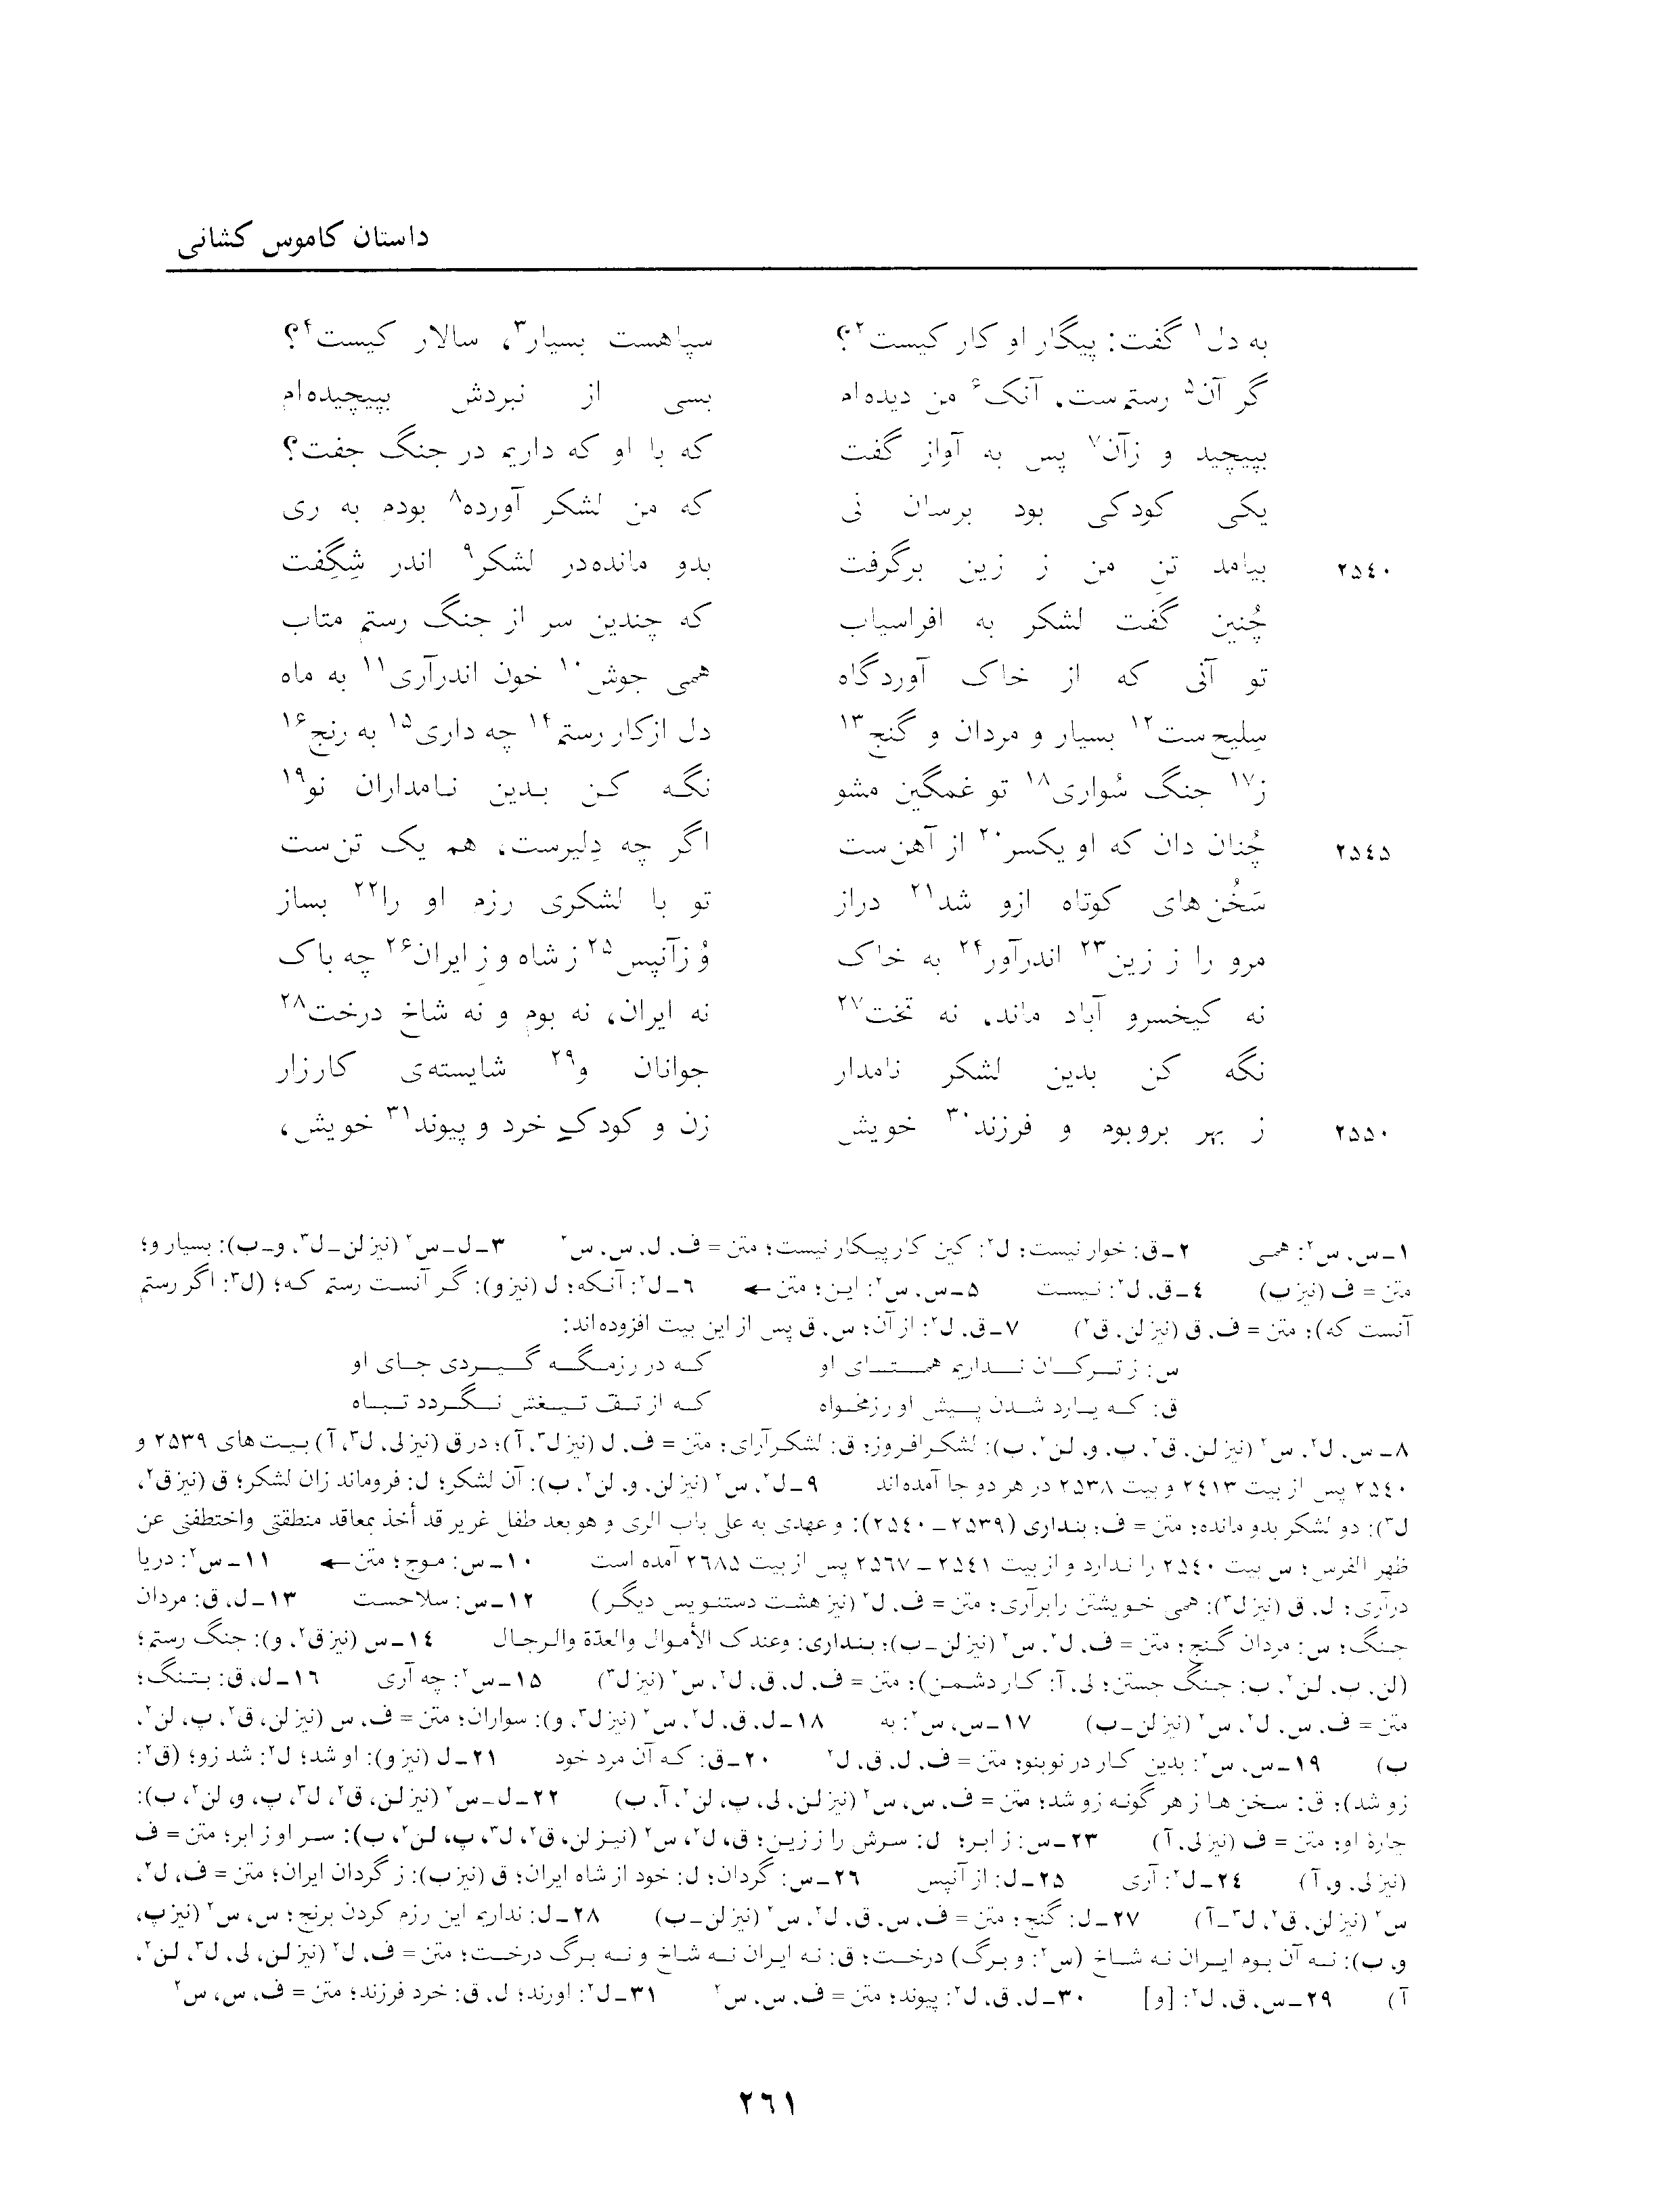 داستان کاموس کشانی
به دل۱ گفت: پیگار او کار کیست۲؟ سپاهست بسیار۳، سالار کیست۴؟
گر آن۵ رستم‌ست، آنک۶ من دیده‌ام بسی از نبردش بپیچیده‌ام
بپیچید و زآن۷ پس به آواز گفت که با او که داریم در جنگ جفت؟
یکی کودکی بود برسان نی که من لشکر آورده۸ بودم به ری
۲۵٤۰ بیامد تنِ من ز زین برگرفت بدو مانده‌در لشکر۹ اندر شِگِفت
چُنین گفت لشکر به افراسیاب که چندین سر از جنگ رستم متاب
تو آنی که از خاک آوردگاه همی جوش۱۰ خون اندرآری۱۱ به ماه
سِلیح‌ست۱۲ بسیار و مردان و گنج۱۳ دل ازکار رستم۱۴ چه داری۱۵ به رنج۱۶
ز۱۷ جنگ سُواری۱۸ تو غمگین مشو نگه کن بدین نامداران نو۱۹
۲۵٤۵ چُنان دان که او یکسر۲۰ از آهن‌ست اگر چه دِلیرست، هم یک تن‌ست
سَخُن‌های کوتاه ازو شد۲۱ دراز تو با لشکری رزم او را۲۲ بساز
مرو را ز زین۲۳ اندرآور۲۴ به خاک وُ زآنپس۲۵ ز شاه و زِ ایران۲۶ چه باک
نه کیخسرو آباد ماند، نه تخت۲۷ نه ایران، نه بوم و نه شاخ درخت۲۸
نگه کن بدین لشکر نامدار جوانان و۲۹ شایسته‌ی کارزار
۲۵۵۰ ز بهر بروبوم و فرزند۳۰ خویش زن و کودکِ خرد و پیوند۳۱ خویش،
۱ـ س، س۲: همی ۲ـ ق: خوار نیست؛ ل۲: کین کار پیکار نیست؛ متن = ف، ل، س، س۲ ۳ـ ل ـ س۲ (نیز لن ـ ل۳، و ـ ب): بسیار و؛
متن = ف (نیز ب) ٤ـ ق، ل۲: نیست ۵ـ س، س۲: این؛ متن ← ۶ـ ل۲: آنکه؛ ل (نیز و): گر آنست رستم که؛ (ل۳: اگر رستم
آنست که)؛ متن = ف، ق (نیز لن، ق۲) ۷ـ ق، ل۲: از آن؛ س، ق پس از این بیت افزوده‌اند:
س: ز ترکان نداریم همتای او که در رزمگه گیردی جای او
ق: که یارد شدن پیش او رزمخواه که از تف تیغش نگردد تباه
۸ـ س، ل۲، س۲ (نیز لن، ق۲، پ، و، لن۲، ب): لشکرافروز؛ ق: لشکرآرای؛ متن = ف، ل (نیز ل۳، آ)؛ در ق (نیز لی، ل۳، آ) بیت‌های ۲۵۳۹ و
۲۵٤۰ پس از بیت ۲٤۱۳ و بیت ۲۵۳۸ در هر دو جا آمده‌اند ۹ـ ل۲، س۲ (نیز لن، و، لن۲، ب): آن لشکر؛ ل: فروماند زان لشکر؛ ق (نیز ق۲،
ل۳): دو لشکر بدو مانده؛ متن = ف؛ بنداری (۲۵۳۹ ـ ۲۵٤۰): و عهدی به علی باب الری و هو بعد طفل غریر قد أخذ بمعاقد منطقتی واختطفنی عن
ظهر الفرس؛ س بیت ۲۵٤۰ را ندارد و از بیت ۲۵٤۱ ـ ۲۵۶۷ پس از بیت ۲۶۸۵ آمده است ۱۰ـ س: موج؛ متن ← ۱۱ـ س۲: دریا
درآری؛ ل، ق (نیز ل۳): همی خویشتن رابرآری؛ متن = ف، ل۲ (نیز هشت دستنویس دیگر) ۱۲ـ س: سلاحست ۱۳ـ ل، ق: مردان
جنگ؛ س: مردان گنج؛ متن = ف، ل۲، س۲ (نیز لن ـ ب)؛ بنداری: وعندک الأموال والعدّة والرجال ۱٤ـ س (نیز ق۲، و): جنگ رستم؛
(لن، پ، لن۲، ب: جنگ جستن؛ لی، آ: کار دشمن)؛ متن = ف، ل، ق، ل۲، س۲ (نیز ل۳) ۱۵ـ س۲: چه آری ۱۶ـ ل، ق: بتنگ؛
متن = ف، س، ل۲، س۲ (نیز لن ـ ب) ۱۷ـ س، س۲: به ۱۸ـ ل، ق، ل۲، س۲ (نیز ل۳، و): سواران؛ متن = ف، س (نیز لن، ق۲، پ، لن۲،
ب) ۱۹ـ س، س۲: بدین کار در نوبنو؛ متن = ف، ل، ق، ل۲ ۲۰ـ ق: که آن مرد خود ۲۱ـ ل (نیز و): او شد؛ ل۲: شد زو؛ (ق۲:
زو شد)؛ ق: سخن‌ها ز هر گونه زو شد؛ متن = ف، س، س۲ (نیز لن، لی، پ، لن۲، آ، ب) ۲۲ـ ل ـ س۲ (نیز لن، ق۲، ل۳، پ، و، لن۲، ب):
چارۀ او؛ متن = ف (نیز لی، آ) ۲۳ـ س: ز ابر؛ ل: سرش را ز زین؛ ق، ل۲، س۲ (نیز لن، ق۲، ل۳، پ، لن۲، ب): سر او ز ابر؛ متن = ف
(نیز لی، و، آ) ۲٤ـ ل۲: آری ۲۵ـ ل: از آنپس ۲۶ـ س: گردان؛ ل: خود از شاه ایران؛ ق (نیز ب): ز گردان ایران؛ متن = ف، ل۲،
س۲ (نیز لن، ق۲، ل۳ ـ آ) ۲۷ـ ل: گنج؛ متن = ف، س، ق، ل۲، س۲ (نیز لن ـ ب) ۲۸ـ ل: نداریم این رزم کردن برنج؛ س، س۲ (نیز پ،
و، ب): نه آن بوم ایران نه شاخ (س۲: و برگ) درخت؛ ق: نه ایران نه شاخ و نه برگ درخت؛ متن = ف، ل۲ (نیز لن، لی، ل۳، لن۲،
آ) ۲۹ـ س، ق، ل۲: [و] ۳۰ـ ل، ق، ل۲: پیوند؛ متن = ف، س، س۲ ۳۱ـ ل۲: اورند؛ ل، ق: خرد فرزند؛ متن = ف، س، س۲
۲۶۱